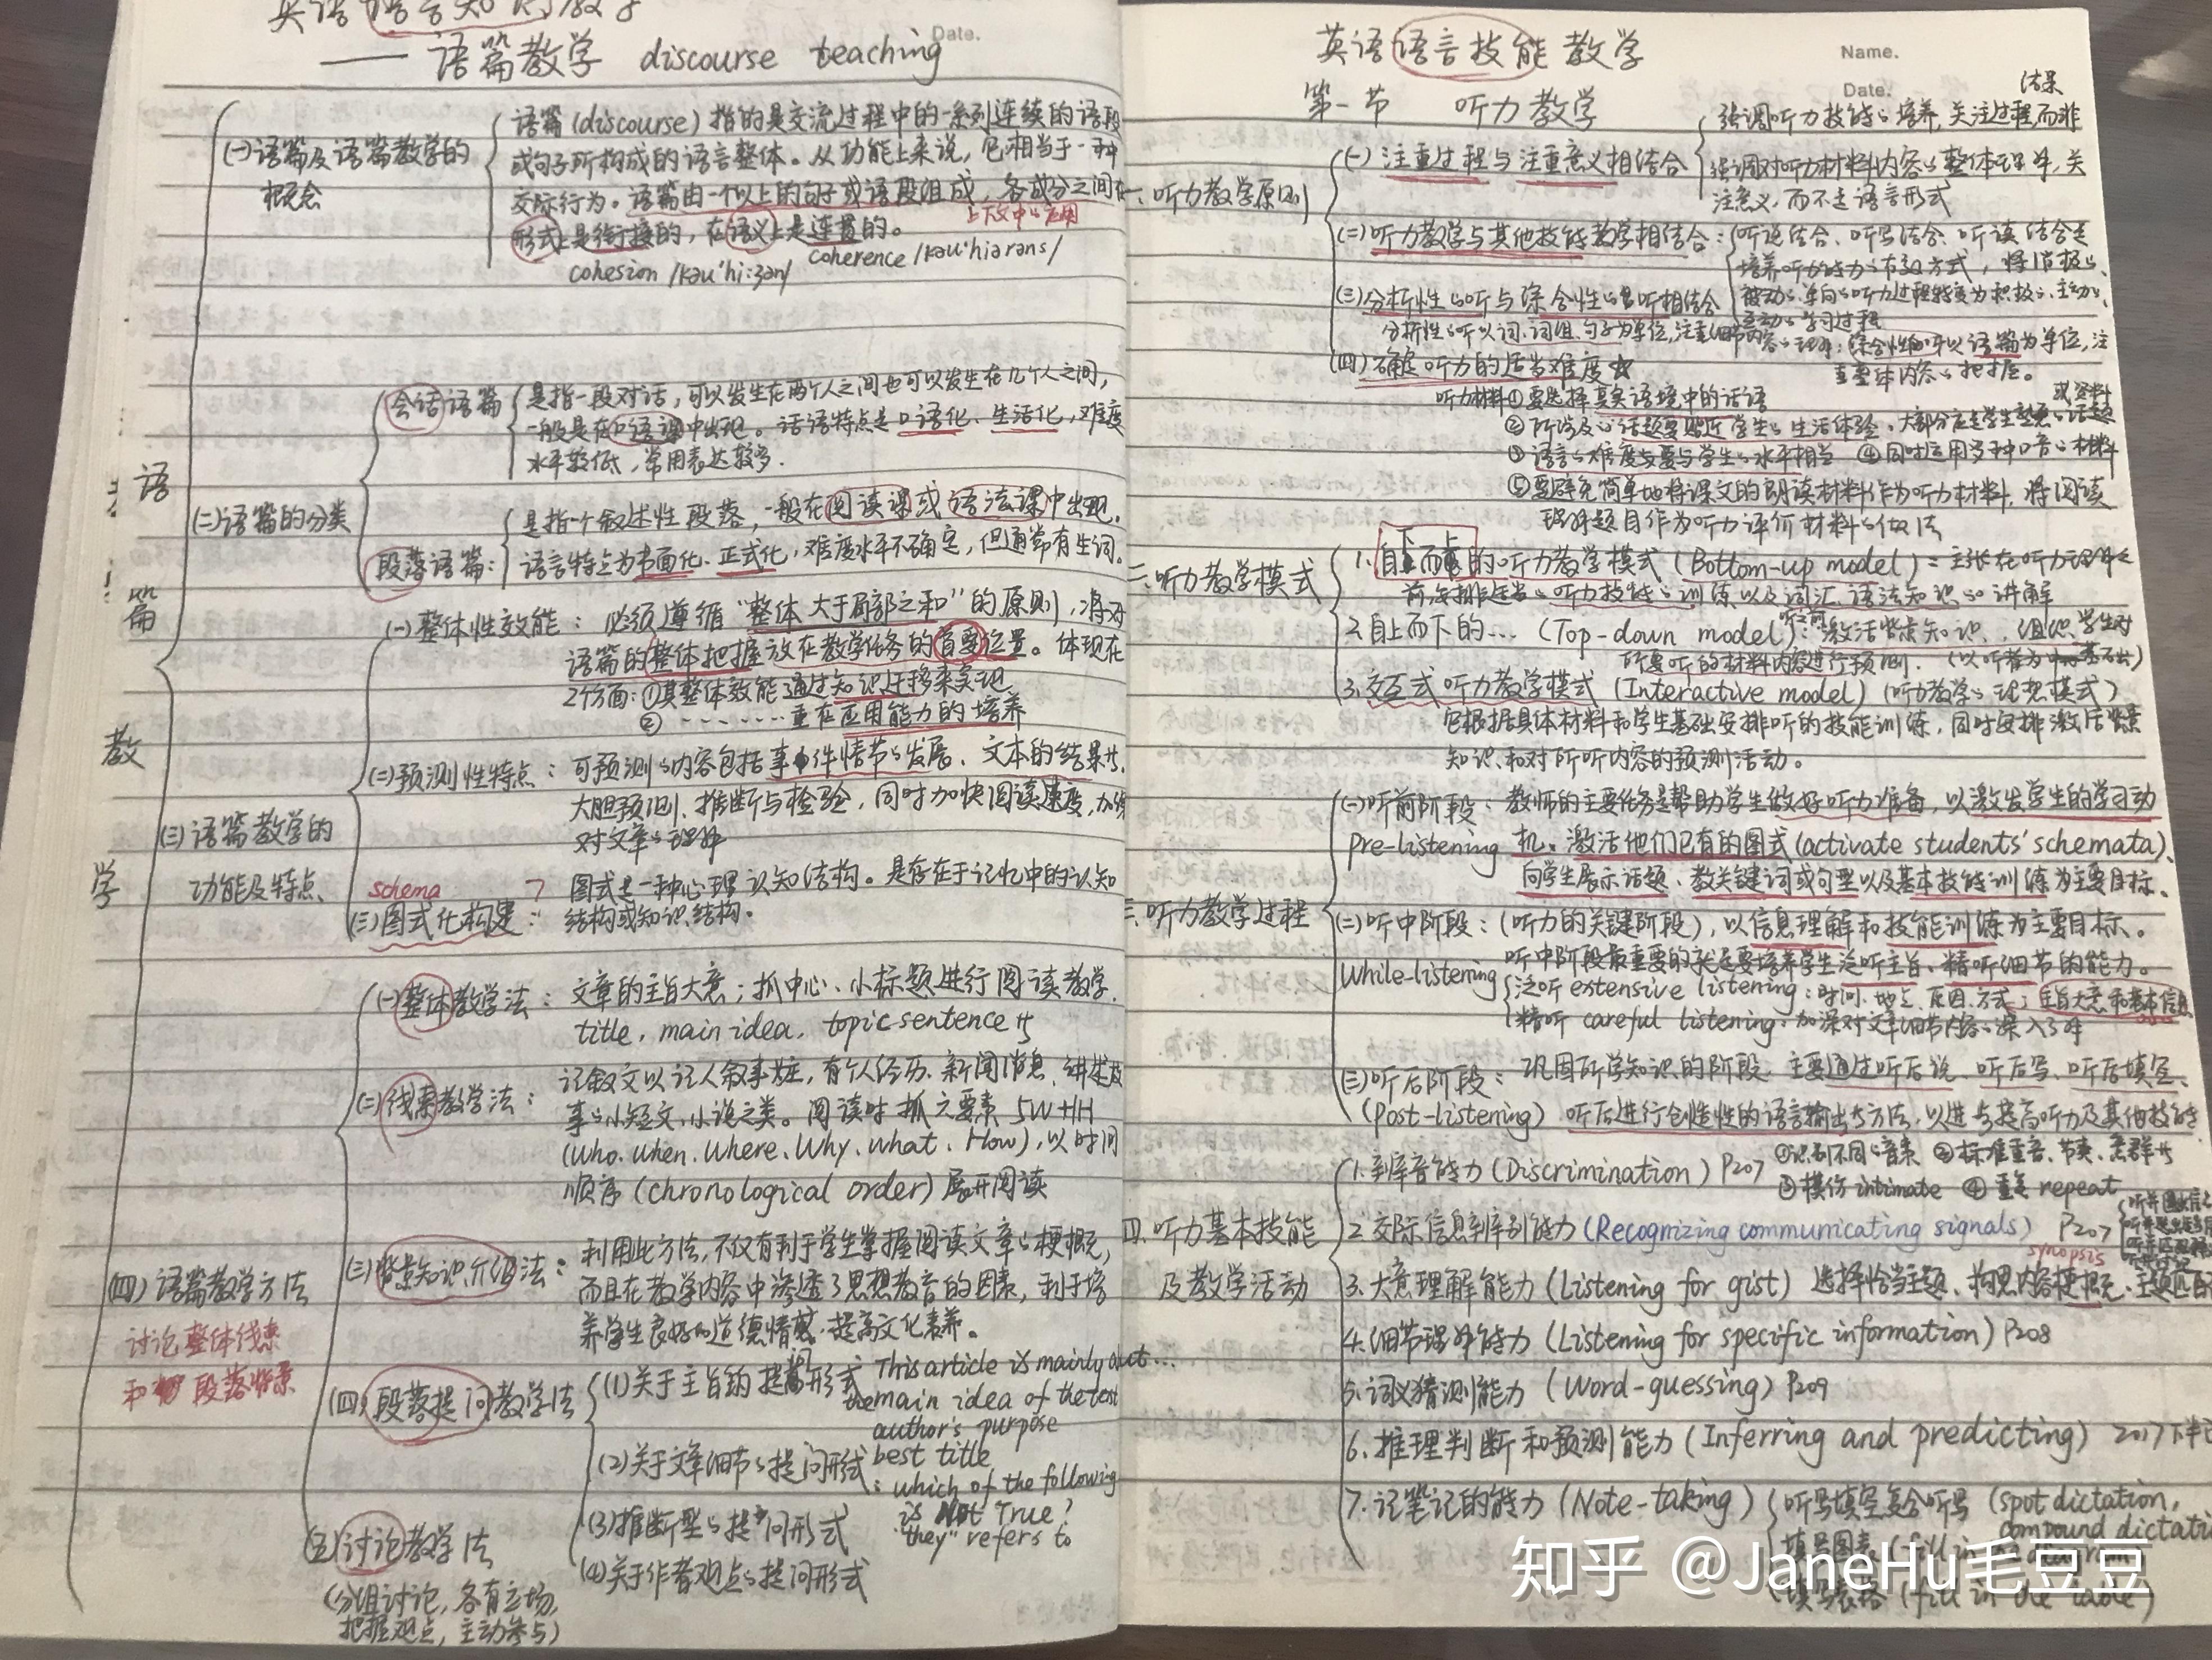 英语语言知识教学
—— 语篇教学 discourse teaching
Date.
语篇教学
(一)语篇及语篇教学的
概念
语篇(discourse)指的是交流过程中的一系列连续的语段
或句子所构成的语言整体。从功能上来说，它相当于一种
交际行为。语篇由一个以上的句子或语段组成，各成分之间在
形式上是衔接的，在语义上是连贯的。
cohesion /kəu'hi:ʒən/
coherence /kəu'hiərəns/
(二)语篇的分类
会话语篇
是指一段对话，可以发生在两个人之间也可以发生在几个人之间，
一般是在口语课中出现。话语特点是口语化、生活化，难度
水平较低，常用表达较多.
段落语篇：
是指一个叙述性段落，一般在阅读课或语法课中出现，
语言特点为书面化、正式化，难度水平不确定，但通常有生词。
(三)语篇教学的
功能及特点、
(一)整体性效能：必须遵循“整体大于局部之和”的原则，将对
语篇的整体把握放在教学任务的首要位置。体现在
2个方面：①其整体效能通过知识迁移来实现
② ‥‥‥‥重在应用能力的培养
(二)预测性特点：可预测的内容包括事件情节的发展、文本的结果等.
大胆预测、推断与检验，同时加快阅读速度，加深
对文章的理解
schema
(三)图式化构建：
图式是一种心理认知结构。是存在于记忆中的认知
结构或知识结构。
(四)语篇教学方法
讨论整体线索
和段落背景
(一)整体教学法：文章的主旨大意；抓中心、小标题进行阅读教学.
title, main idea, topic sentence等
(二)线索教学法：
记叙文以记人叙事为主，有个人经历、新闻消息、讲述故
事的小短文、小说之类。阅读时抓六要素 5W+1H
(Who. When. Where. Why. What. How)，以时间
顺序(chronological order)展开阅读
(三)背景知识介绍法：利用此方法，不仅有利于学生掌握阅读文章的梗概，
而且在教学内容中渗透了思想教育的因素，利于培
养学生良好的道德情操、提高文化素养。
(四)段落提问教学法
(1)关于主旨的提问形式 This article is mainly about...
the main idea of the text
author's purpose
best title
(2)关于文章细节的提问形式：which of the following
is Not True?
(3)推断型的提问形式 "they" refers to
(4)关于作者观点的提问形式
(五)讨论教学法
(分组讨论，各有立场,
把握观点，主动参与)
英语语言技能教学
Name.
Date.
第一节 听力教学
一、听力教学原则
(一)注重过程与注重意义相结合
强调听力技能的培养，关注过程，而非
结果
强调对听力材料内容的整体理解，关
注意义，而不是语言形式
上下文中的应用
(二)听力教学与其他技能教学相结合：听说结合、听写结合、听读结合是
培养听的能力的有效方式，将消极的、
被动的、单向的听力过程转变为积极的、主动的、
互动的学习过程
(三)分析性的听与综合性的听相结合
分析性的听以词、词组、句子为单位，注重细节内容的理解；综合性的听以语篇为单位，注
重整体内容的把握。
(四)确定听力的适当难度☆
听力材料①要选择真实语境中的话语
或资料
②所涉及的话题要贴近学生的生活体验、大部分应是学生熟悉的话题
③语言的难度要与学生的水平相当 ④同时运用多种口音的材料
⑤要避免简单地将课文的朗读材料作为听力材料，将阅读
理解题目作为听力评价材料的做法
二.听力教学模式
1.自下而上的听力教学模式(Bottom-up model)：主张在听力理解之
前安排适当的听力技能的训练以及词汇、语法知识的讲解
2.自上而下的...(Top-down model)：听之前激活背景知识，组织学生对
所要听的材料内容进行预测. (以听者为中心)
3.交互式听力教学模式(Interactive model) (听力教学的理想模式)
它根据具体材料和学生基础安排听的技能训练，同时安排激活背景
知识、和对所听内容的预测活动。
三.听力教学过程
(一)听前阶段：教师的主要任务是帮助学生做好听力准备，以激发学生的学习动
pre-listening 机。激活他们已有的图式(activate students' schemata)、
向学生展示话题、教关键词或句型以及基本技能训练为主要目标.
(二)听中阶段：(听力的关键阶段)，以信息理解和技能训练为主要目标。
While-listening 听中阶段最重要的就是要培养学生泛听主旨、精听细节的能力。
泛听extensive listening：时间、地点、原因、方式；主旨大意和基本信息
精听 careful listening：加深对文章细节内容的深入了解
(三)听后阶段：巩固所学知识的阶段，主要通过听后说、听后写、听后填空、
(Post-listening) 听后进行创造性的语言输出等方法，以进一步提高听力及其他技能.
四.听力基本技能
及教学活动
1.辨音能力(Discrimination) P207 ①识别不同的音素 ②标准重音、节奏、意群等
③模仿intimate ④重复repeat
2.交际信息辨别能力(Recognizing communicating signals) P207
3.大意理解能力(Listening for gist) 选择恰当主题、构思内容梗概、主题匹配
synopsis
4.细节理解能力(Listening for specific information) P208
5.词义猜测能力(Word-guessing) P209
6.推理判断和预测能力(Inferring and predicting) 2017下半
7.记笔记的能力(Note-taking) 听写填空、复合听写(spot dictation,
compound dictation
填写图表(fill in
填写表格(fill in the table)
知乎 @JaneHu毛豆豆